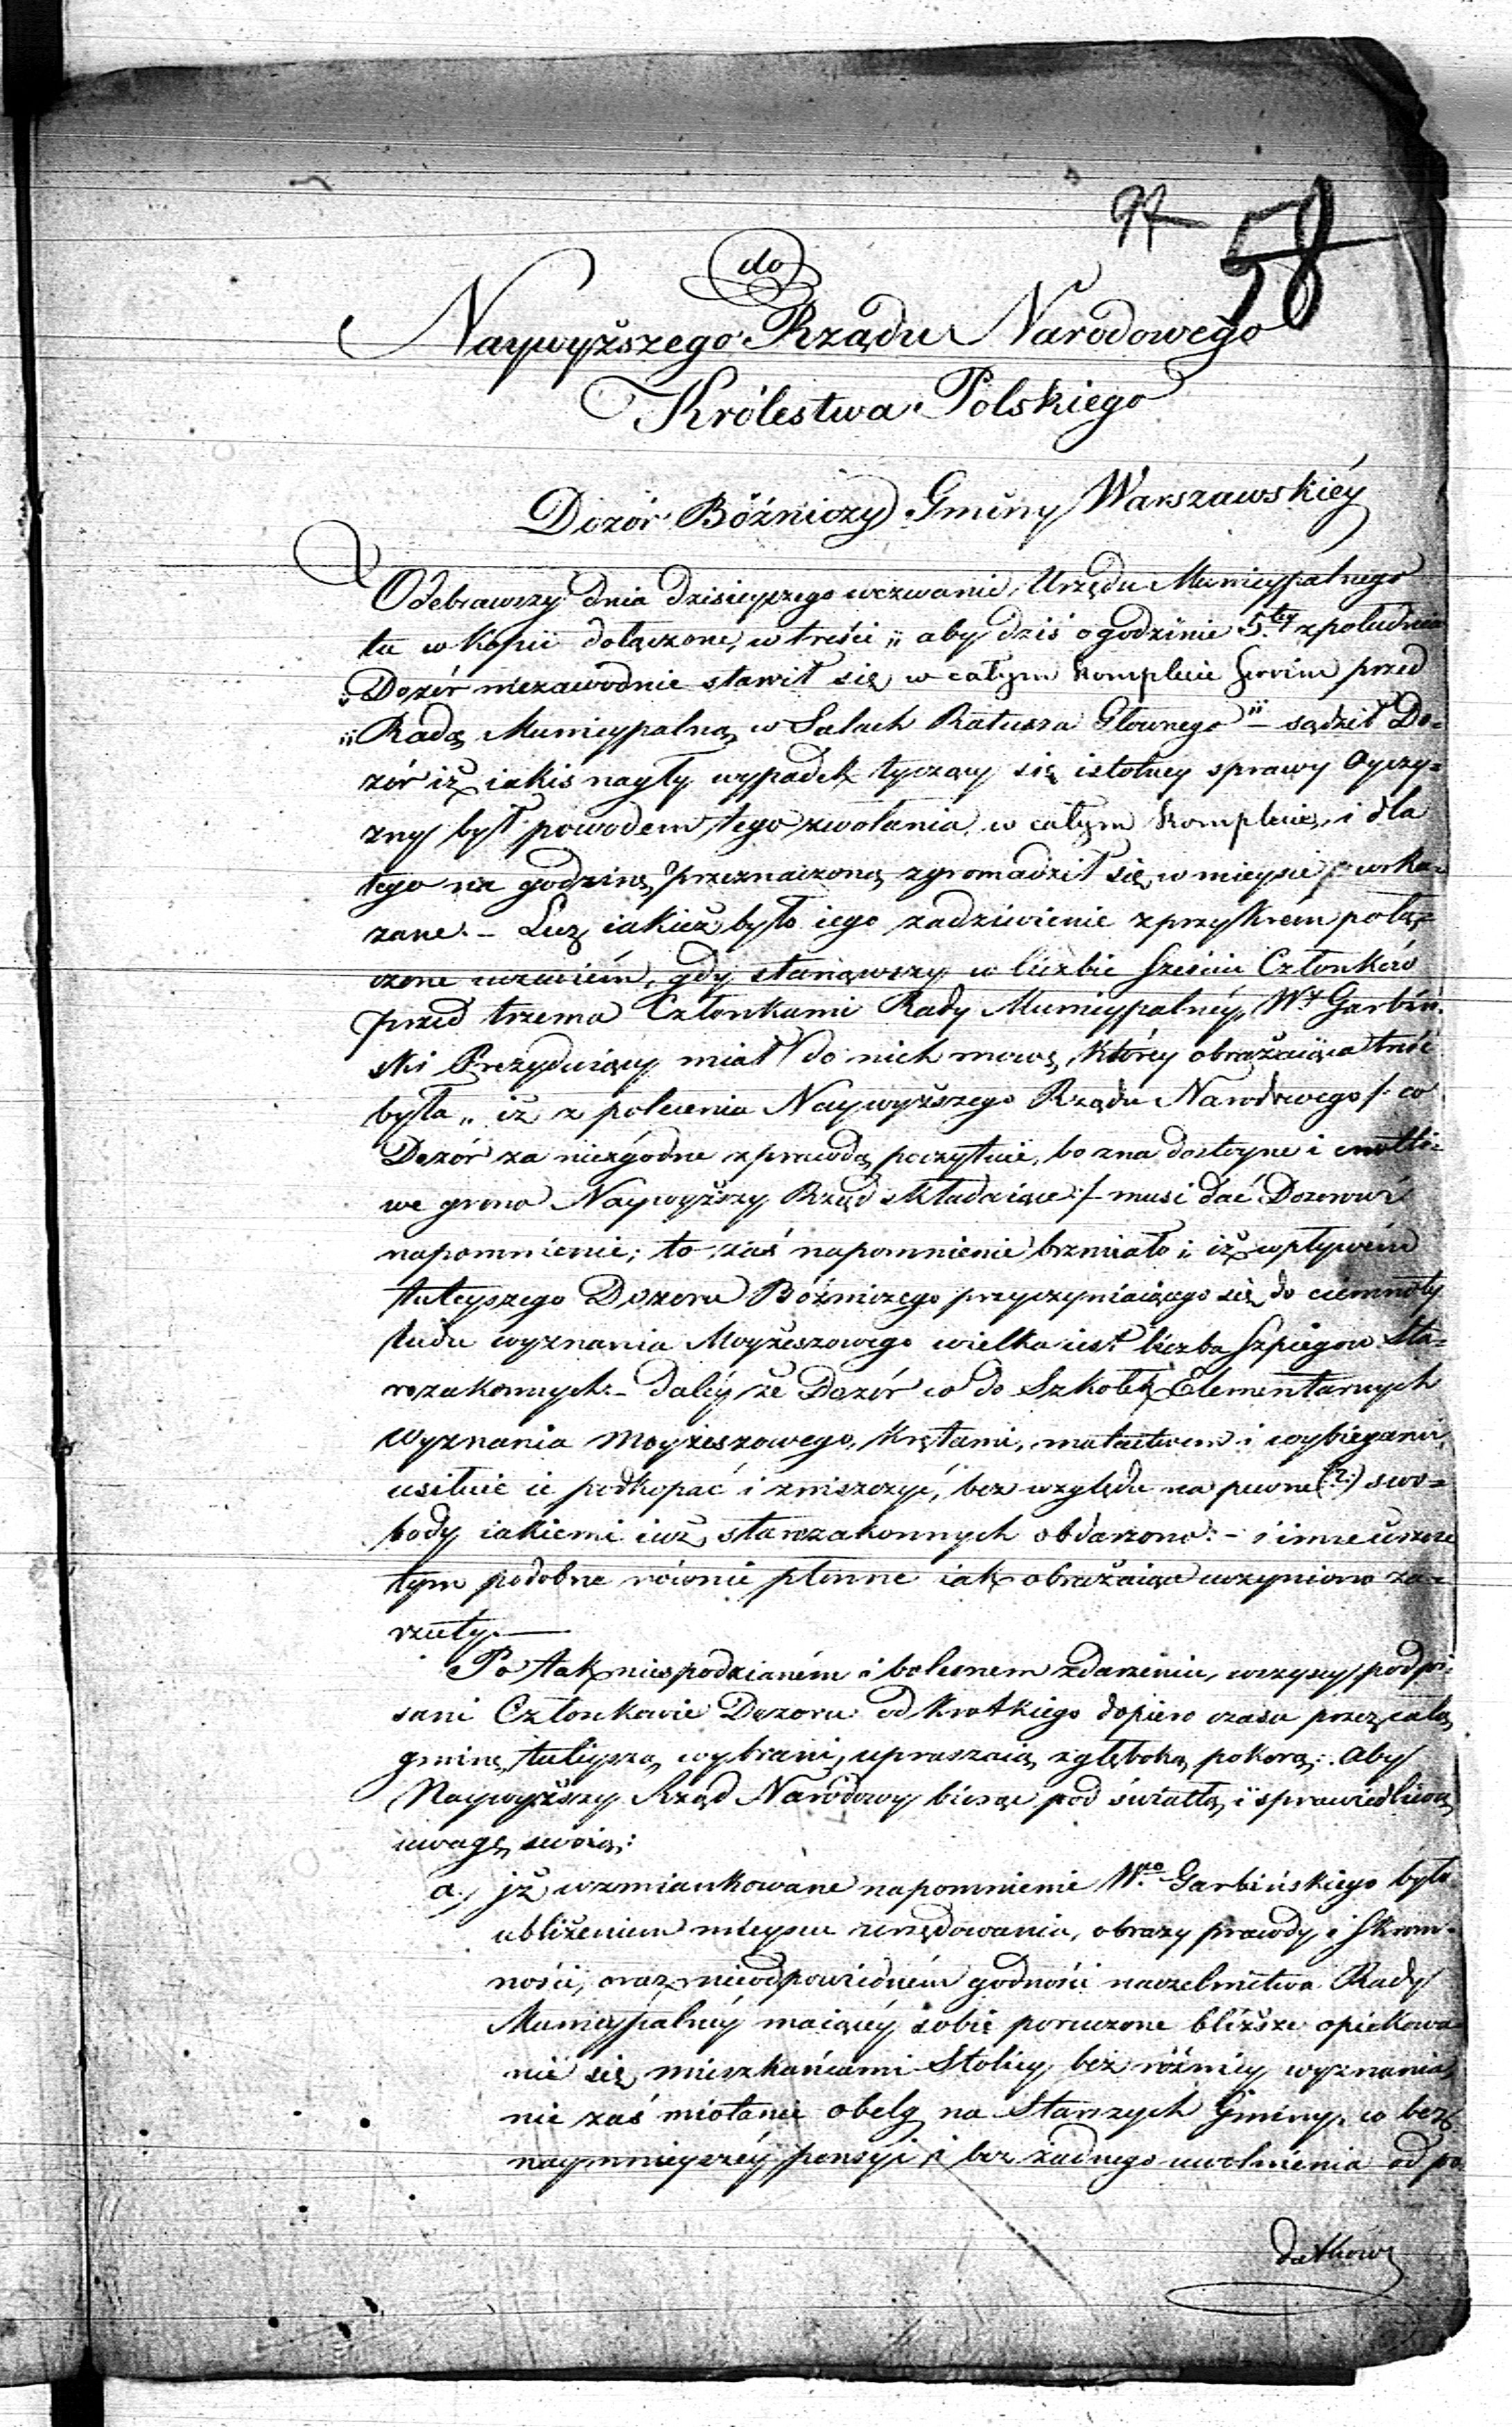 97 58
do
Naywyższego Rządu Narodowego
Królestwa Polskiego
Dozór Bóźniczy Gminy Warszawskiéy
Odebrawszy dnia dzisieyszego wezwanie Urzędu Municypalnego
tu w kopii dołączone, w treści „ aby dziś o godzinie 5.tey z południa
„ Dozór niezawodnie stawił się w całym komplecie swoim przed
„ Radą Municypalną w Salach Ratusza Głownego " – sądził Do=
zór iż iakiś nagły wypadek tyczący się istotney sprawy Oyczy=
zny był powodem tego zwołania w całym komplecie, i dla
tego na godzinę przeznaczoną zgromadził się w mieysce wska=
zane. – Lecz iakież było iego zadziwienie z przykrém połą=
czone uczuciém, gdy stanąwszy w liczbie sześciu Członków
przed trzema Członkami Rady Municypalnéy, Wy Garbiń=
ski Prezyduiący miał do nich mowę, którey obrażaiąca treść
była „ iż z polecenia Naywyższego Rządu Narodowego /: co
Dozór za niezgodne z prawdą poczytuie, bo zna dostoyne i cnotli=
we grono Naywyższy Rząd składaiące :/ musi dać Dozorowi
napomnienie; to zaś napomnienie brzmiało: iż wpływem
tuteyszego Dozoru Bóźniczego przyczyniaiącego się do ciemnoty
ludu wyznania Moyżeszowego wielka iest liczba Szpiegow Sta=
rozakonnych. – daléy że Dozór co do Szkołek Elementarnych
Wyznania Moyżeszowego, krętami, matactwem i wybiegami
usiłuie ie podkopać i zniszczyć, bez względu na pewne (?) swo=
body iakiemi iuż starozakonnych obdarzono: – i inne
tym podobne równie płonne iak obrażaiące uczyniono za=
rzuty. —
Po tak niespodzianém i bolesnem zdarzeniu, wszyscy podpi=
sani Członkowie Dozoru od krotkiego dopiero czasu przez całą
gminę tuteyszą wybrani, upraszaią z głęboką pokorą: aby
Naywyższy Rząd Narodowy biorąc pod światłą i sprawiedliwą
uwagę swoią:
a./ iż wzmiankowane napomnienie Wgo Garbińskiego było
ubliżeniem mieyscu urzędowania, obrazy prawdy i skrom=
ności, oraz nieodpowiedném godności naczelnictwa Rady
Municypalnéy maiącéy sobie poruczone bliższe opiekowa=
nie się mieszkańcami Stolicy bez różnicy wyznania,
nie zaś miotanie obelg na Starszych Gminy, co bez
naymnieyszéy pensyi i bez żadnego uwolnienia od po=
datków